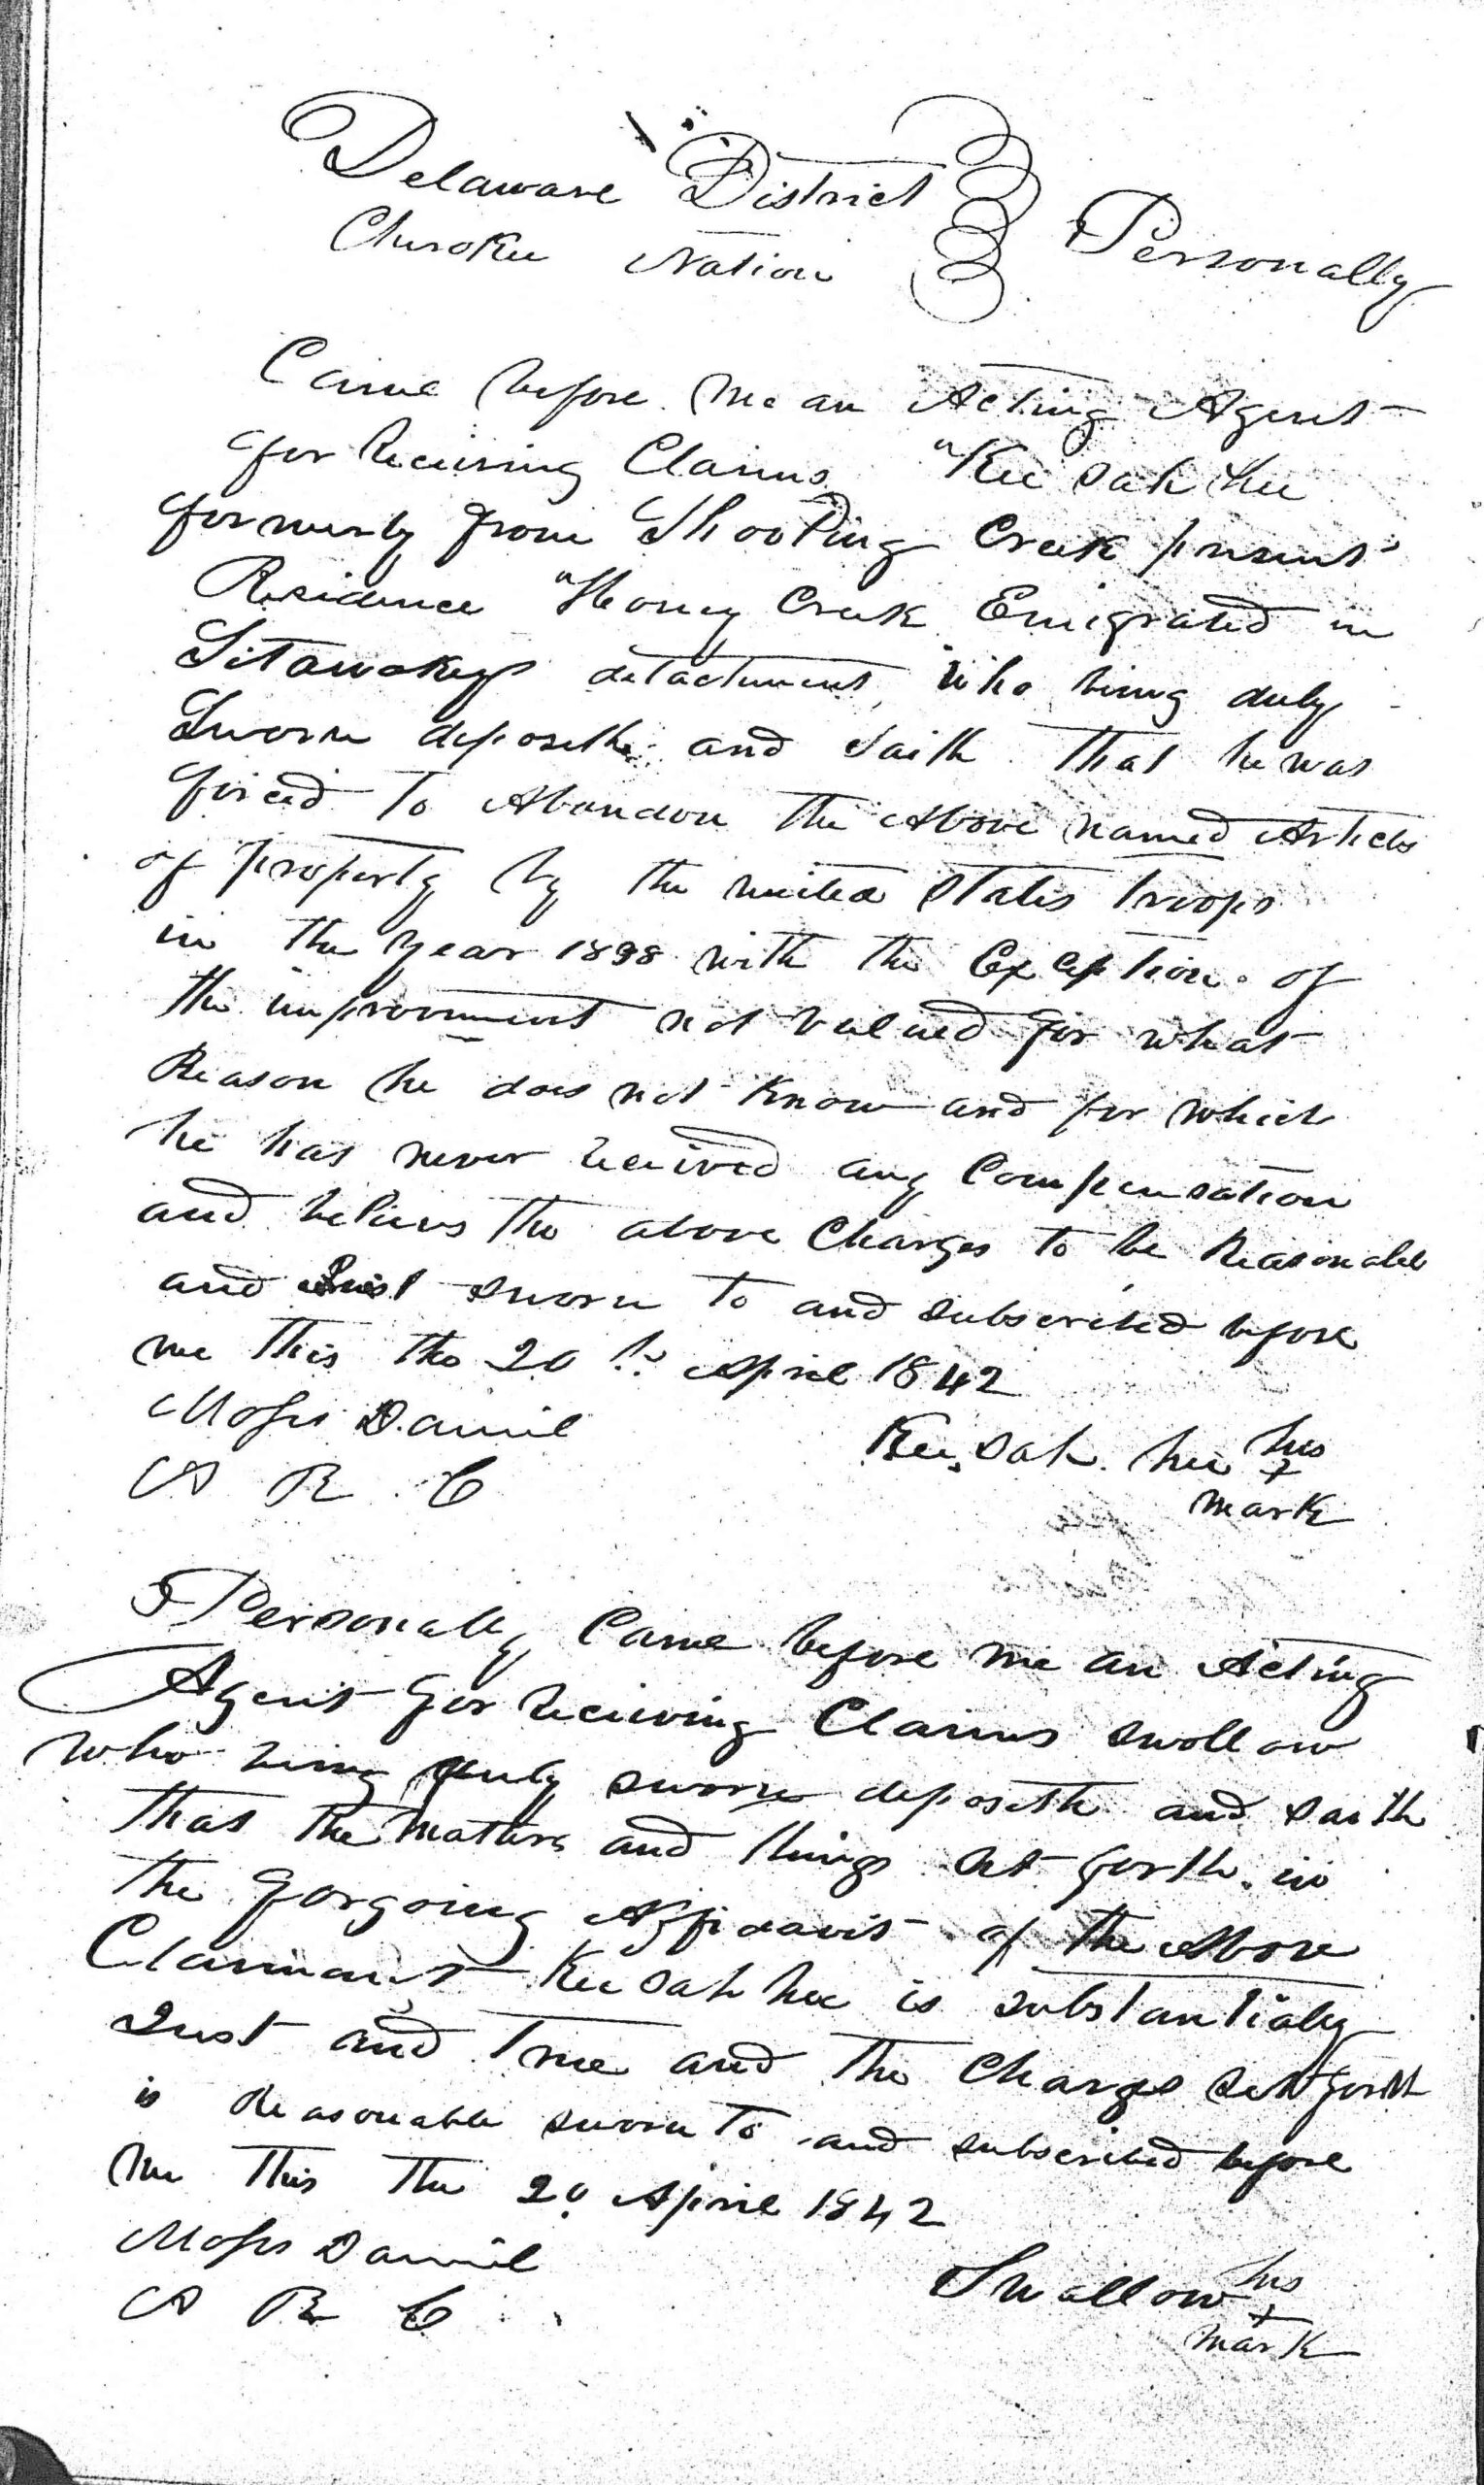 Delaware District
Cherokee Nation Personally
Came before me an Acting Agent
for Receiving Claims "Kee sah hee
formerly from Shooting Creek present
Residence "Honey Creek Emigrated in
Sitawakeys detachment, who being duly
Sworn deposeth and saith that he was
forced to Abandon the Above named Articles
of property by the united States troops
in the year 1838 with the Exception of
the improvment not valued for what
Reason he does not Know and for which
he has never received any Compensation
and believs the above Charges to be Reasonable
and Just sworn to and subscribed before
me this the 20th April 1842
Moses Daniel
A R C
Kee sah hee his
x
mark
Personally Came before me an Acting
Agent for Receiving Claims swollow
who being duly sworn deposeth and saith
that the matters and things set forth in
the forgoing Affidavit of the Above
Claimant Kee sah hee is substantialy
Just and True and the Charges set forth
is Reasonable sworn to and subscribed before
me this the 20 April 1842
Moses Daniel
A R C
Swallow his
x
mark